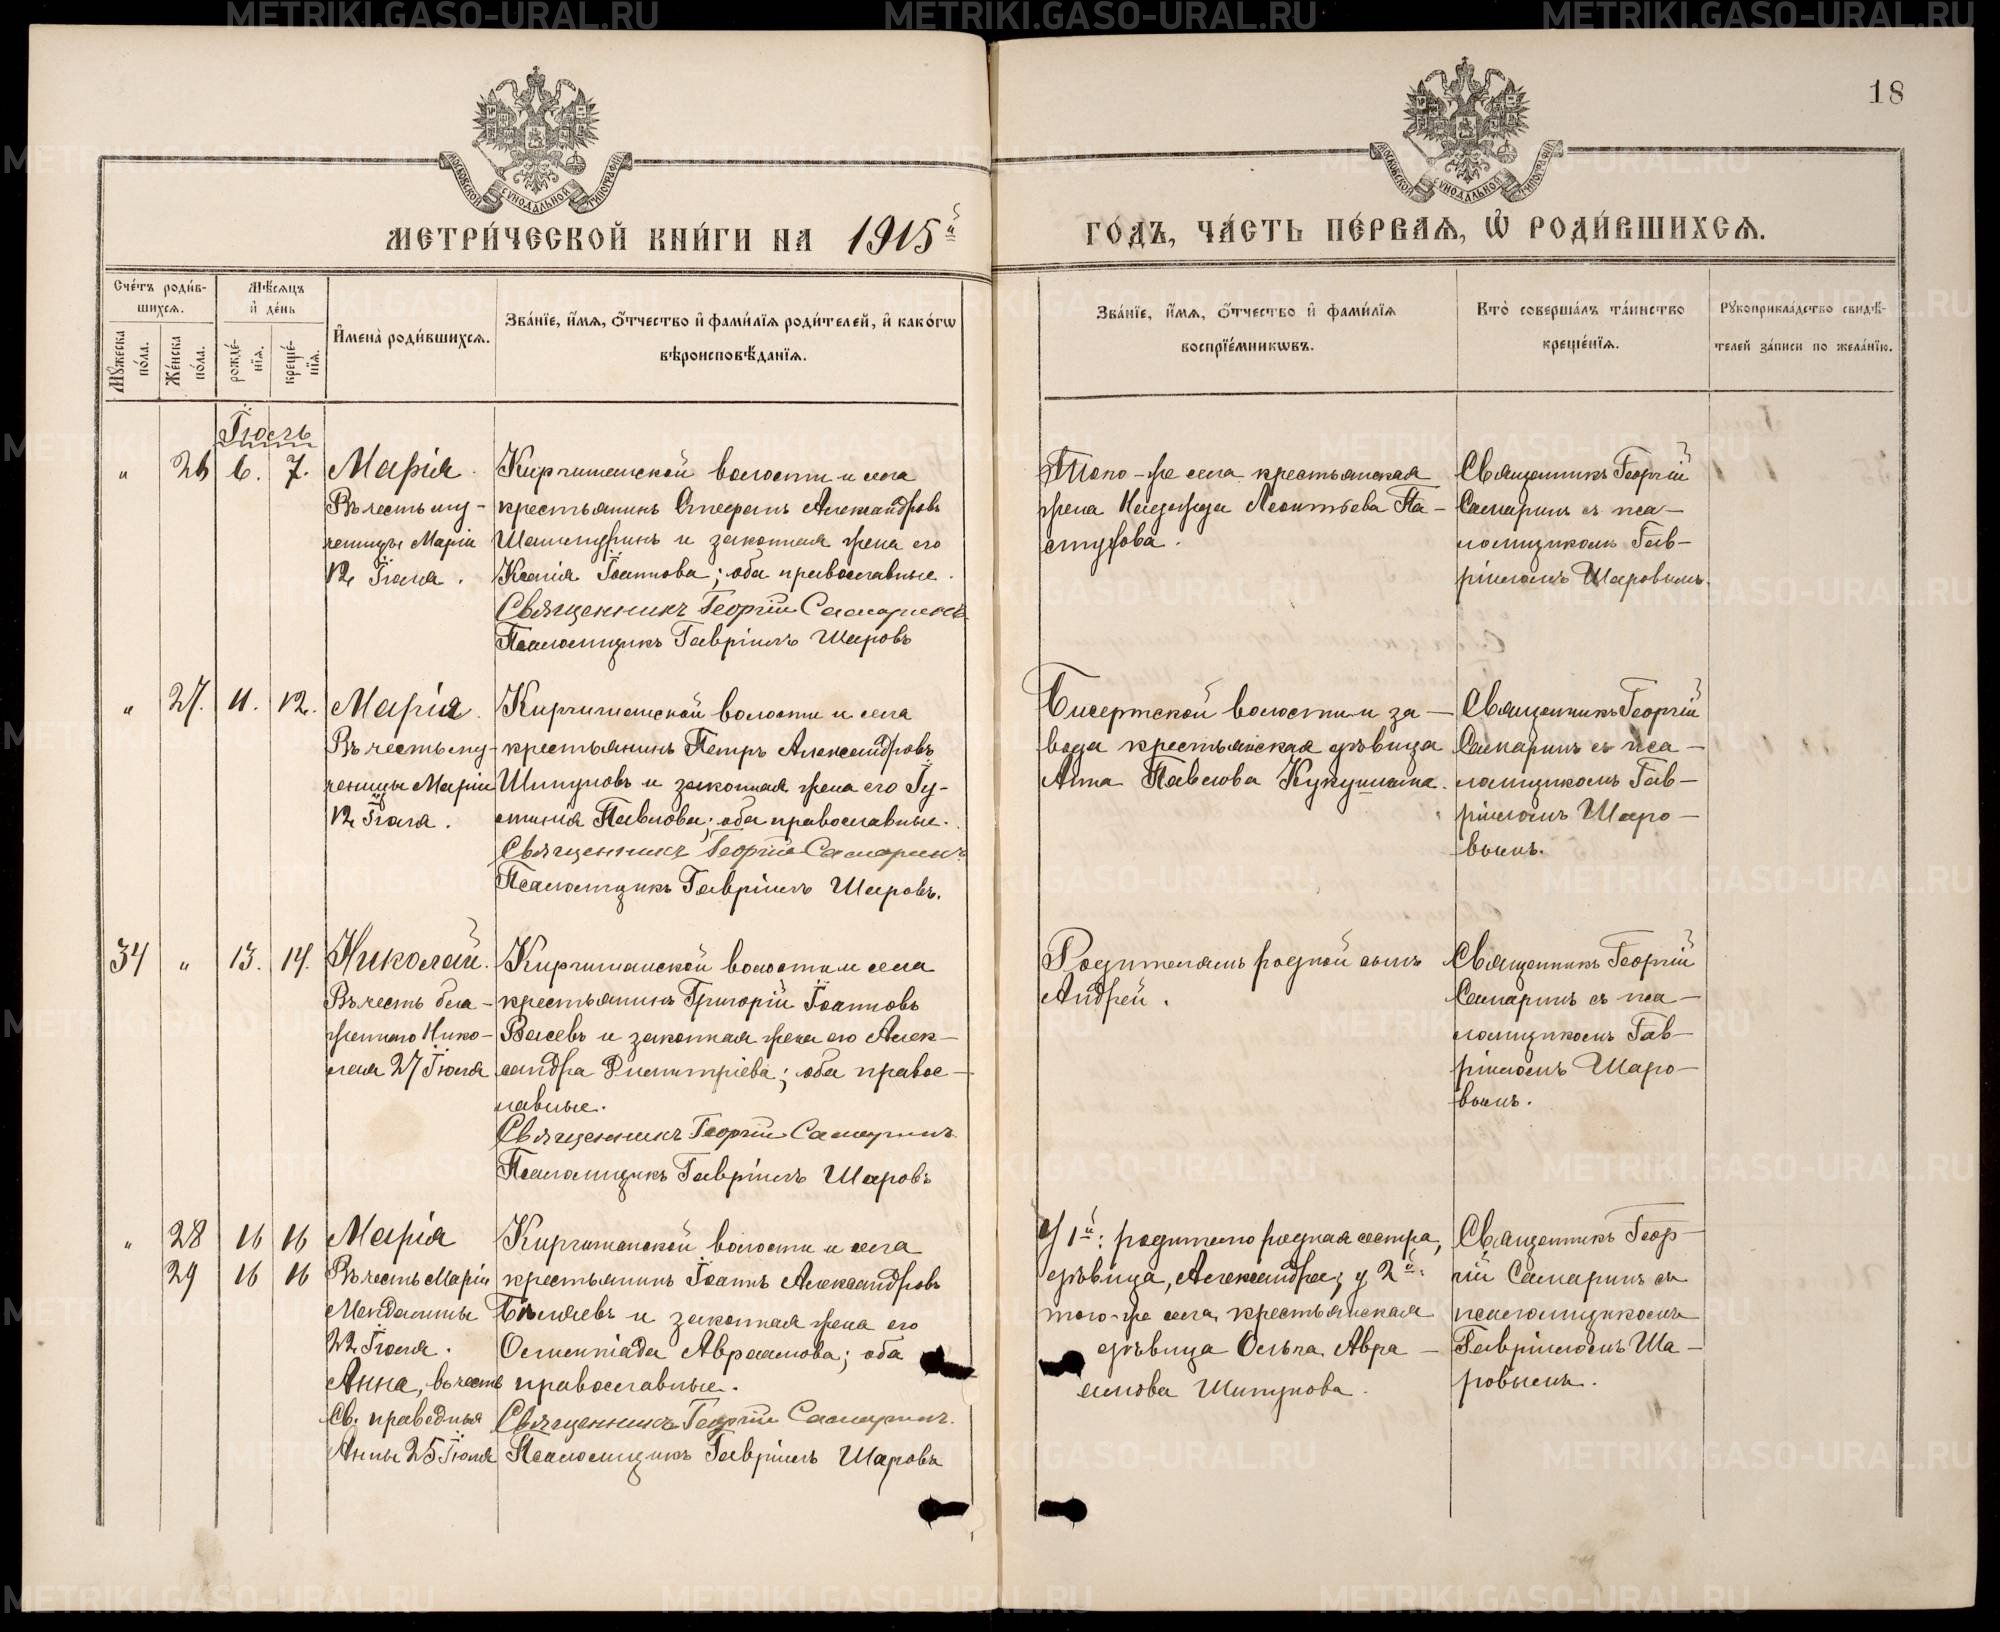 18
МОСКОВСКОЙ СѴНОДАЛЬНОЙ ТИПОГРАФІИ
МОСКОВСКОЙ СѴНОДАЛЬНОЙ ТИПОГРАФІИ
МЕТРИ́ЧЕСКОЙ КНИ́ГИ НА 1915й
ГО́ДЪ, ЧА́СТЬ ПЕ́РВАѦ, Ѽ РОДИ́ВШИХСѦ.
Сче́тъ роди́в-
шихсѧ.
Мꙋжеска по́ла.
Же́нска по́ла.
Мѣ́сѧцъ
и҆ де́нь
рожде́-
нїѧ.
креще́-
нїѧ.
И҆мена̀ роди́вшихсѧ.
Зва́нїе, и҆́мѧ, ѻ҆́тчество и҆ фами́лїѧ роди́телей, и҆ како́гѡ
вѣроисповѣ́данїѧ.
Зва́нїе, и҆́мѧ, ѻ҆́тчество и҆ фами́лїѧ
воспрїе́мникѡвъ.
Кто̀ соверша́лъ та́инство
креще́нїѧ.
Рꙋкоприкла́дство свидѣ́-
телей за́писи по жела́нїю.
Іюль
" 26 6. 7.
Марія.
Въ честь му-
ченицы Маріи
12 Іюля.
Киргишанской волости и села
крестьянинъ Стефанъ Александровъ
и законная жена его
Ксенія Іоаннова; оба православные.
Священникъ Георгій Самаринъ
Псаломщикъ Гавріилъ Шаровъ
Того-же села крестьянская
жена Надежда Леонтьева Па-
стухова.
Священникъ Георгій
Самаринъ съ пса-
ломщикомъ Гав-
ріиломъ Шаровымъ.
" 27. 11. 12.
Марія.
Въ честь му-
ченицы Маріи
12 Іюля.
Киргишанской волости и села
крестьянинъ Петръ Александровъ
Шипуновъ и законная жена его Іу-
стинія Павлова; оба православные.
Священникъ Георгій Самаринъ
Псаломщикъ Гавріилъ Шаровъ.
Бисертской волости и за-
вода крестьянская дѣвица
Анна Павлова Кукушкина.
Священникъ Георгій
Самаринъ съ пса-
ломщикомъ Гав-
ріиломъ Шаро-
вымъ.
34 " 13. 14.
Николай.
Въ честь бла-
женнаго Нико-
лая 27 Іюля
Киргишанской волости и села
крестьянинъ Григорій Іоанновъ
и законная жена его Алек-
сандра Димитріева; оба правос-
лавные.
Священникъ Георгій Самаринъ
Псаломщикъ Гавріилъ Шаровъ
Родителямъ родной сынъ
Андрей.
Священникъ Георгій
Самаринъ съ пса-
ломщикомъ Гав-
ріиломъ Шаро-
вымъ.
" 28 16 16
29 16 16
Марія
Въ честь Маріи
Магдалины
22 Іюля.
Анна, въ честь
Св. праведныя
Анны 25 Іюля
Киргишанской волости и села
крестьянинъ Іоаннъ Александровъ
Бѣляевъ и законная жена его
Олимпіада Авраамова; оба
православные.
Священникъ Георгій Самаринъ.
Псаломщикъ Гавріилъ Шаровъ
У 1й: родителю родная сестра,
дѣвица, Александра; у 2й:
того-же села, крестьянская
дѣвица Ольга Авра-
амова Шипунова.
Священникъ Геор-
гій Самаринъ съ
псаломщикомъ
Гавріиломъ Ша-
ровымъ.
METRIKI.GASO-URAL.RU